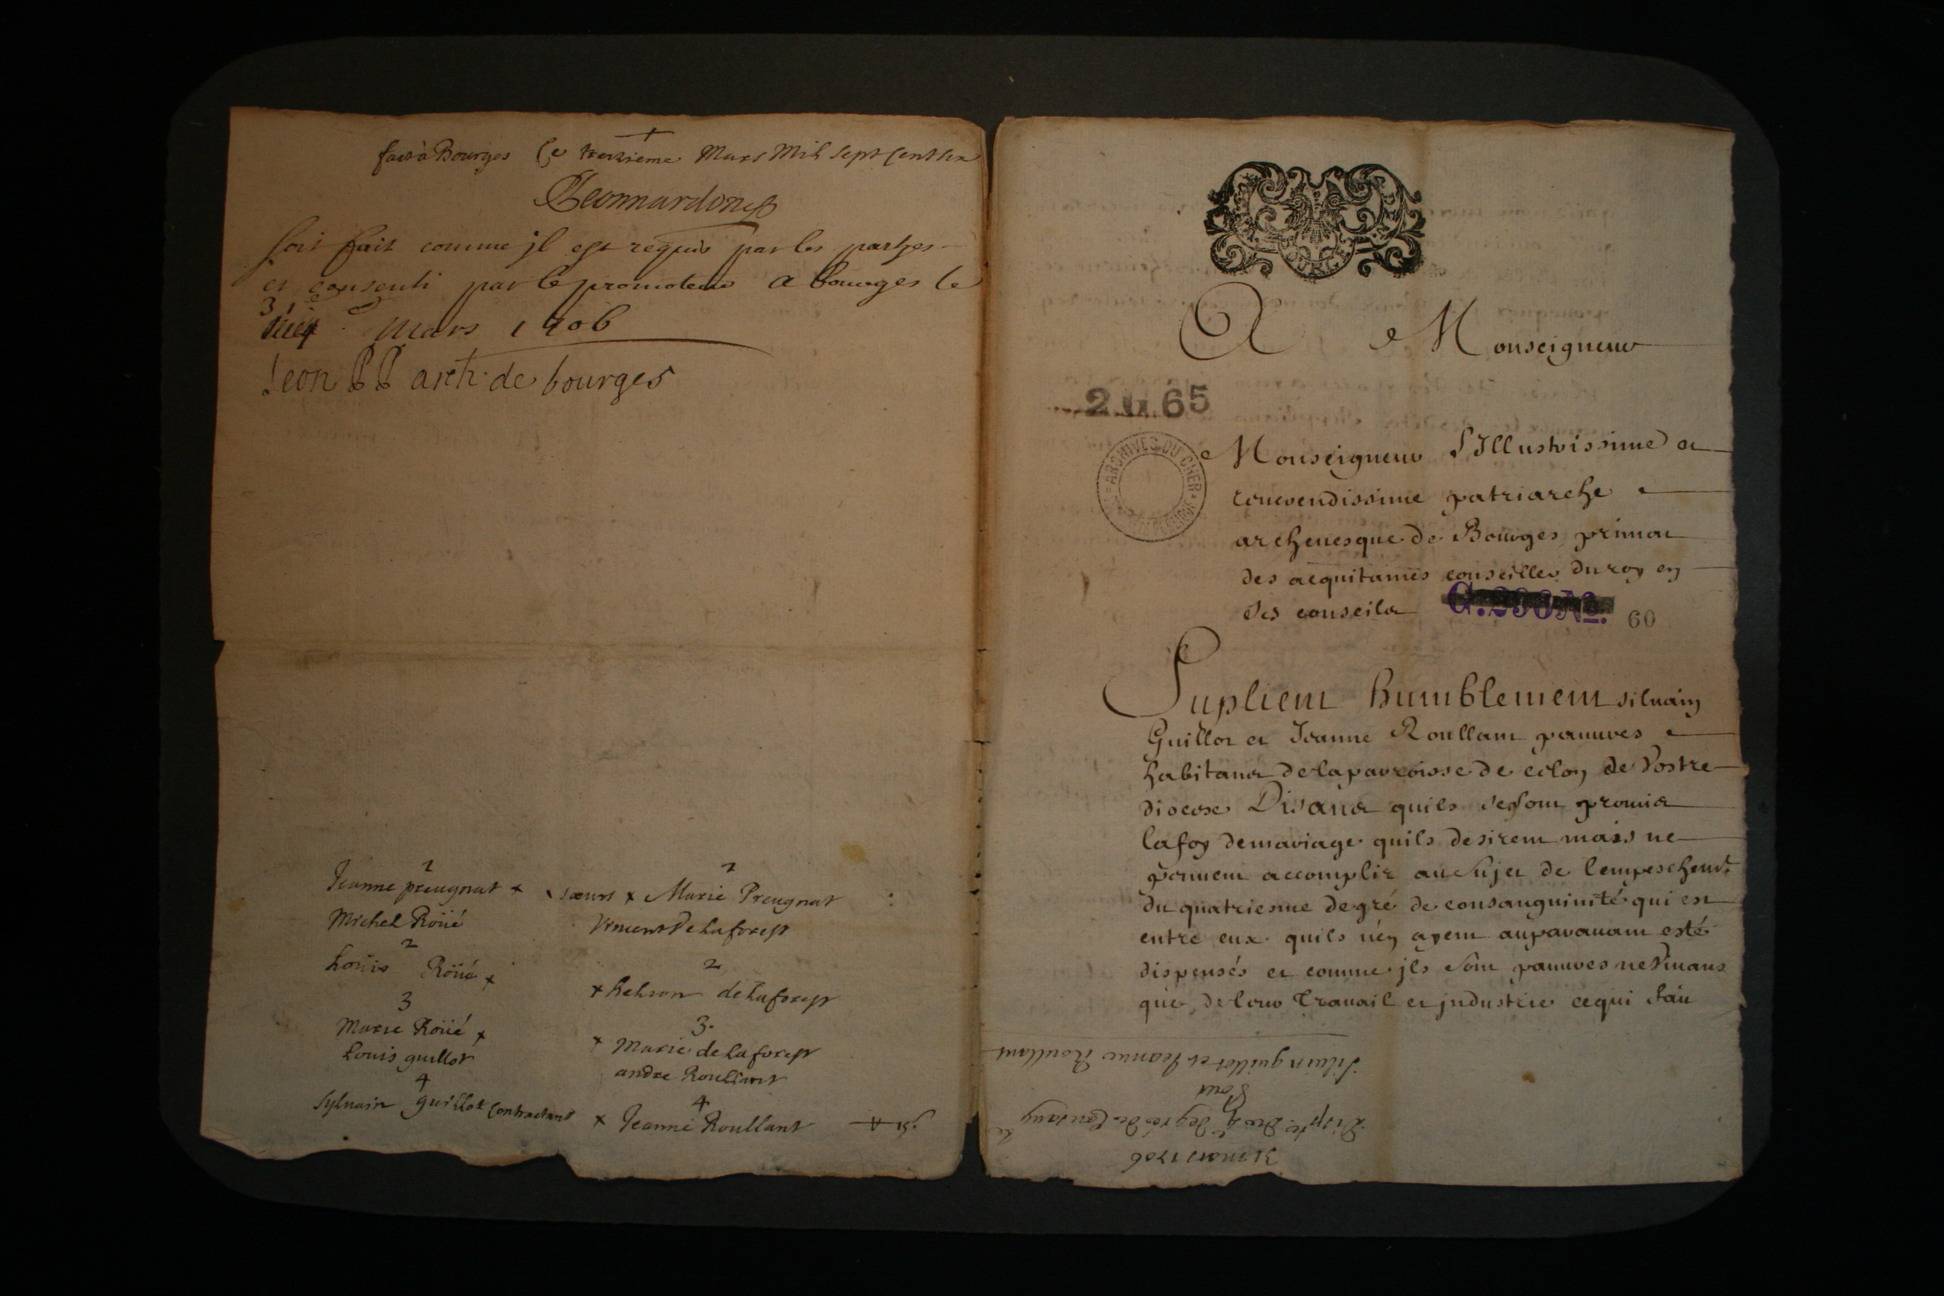 fait à Bourges Ce treizieme Mars Mil Sept Cent six
soit fait comme jl est requis par les partyes
et consenti par le promoteur A bourges le
31e Mars 1706
Leon PP arch. de bourges
2 2
Jeanne preugnat x sœurs x Marie Preugnat
Michel Roüé Vincent De Laforest
2 2
Loüis Roüé x x delaforest
3 3.
Marie Roüé x x Marie de Laforest
Louis guillot andre Roullant
4 4
Sylvain guillot Contractans x Jeanne Roullant
BOURGES
A Monseigneur
2 G 65
ARCHIVES DU CHER
Monseigneur L'Illustrissime et
reverendissime patriarche
archevesque de Bourges primat
des acquitaines conseiller du roy en
ses conseils G. 60
Suplient humblement silvain
Guillot et Jeanne Roullant pauvres
habitans de la parroisse de de Vostre
diocese Disans quils se sont promis
la foy de mariage quils desirent mais ne
peuvent accomplir au sujet de lempeschemt.
du quatriesme degré de consanguinité qui est
entre eux quils n'en ayent auparavant esté
dispensés et comme jls sont pauvres ne vivans
que de leur travail et jndustrie ce qui fait
Silvin guillot et Jeanne Roullant
Pour
Dispse. Du 4e degré de Consang
31 mars 1706